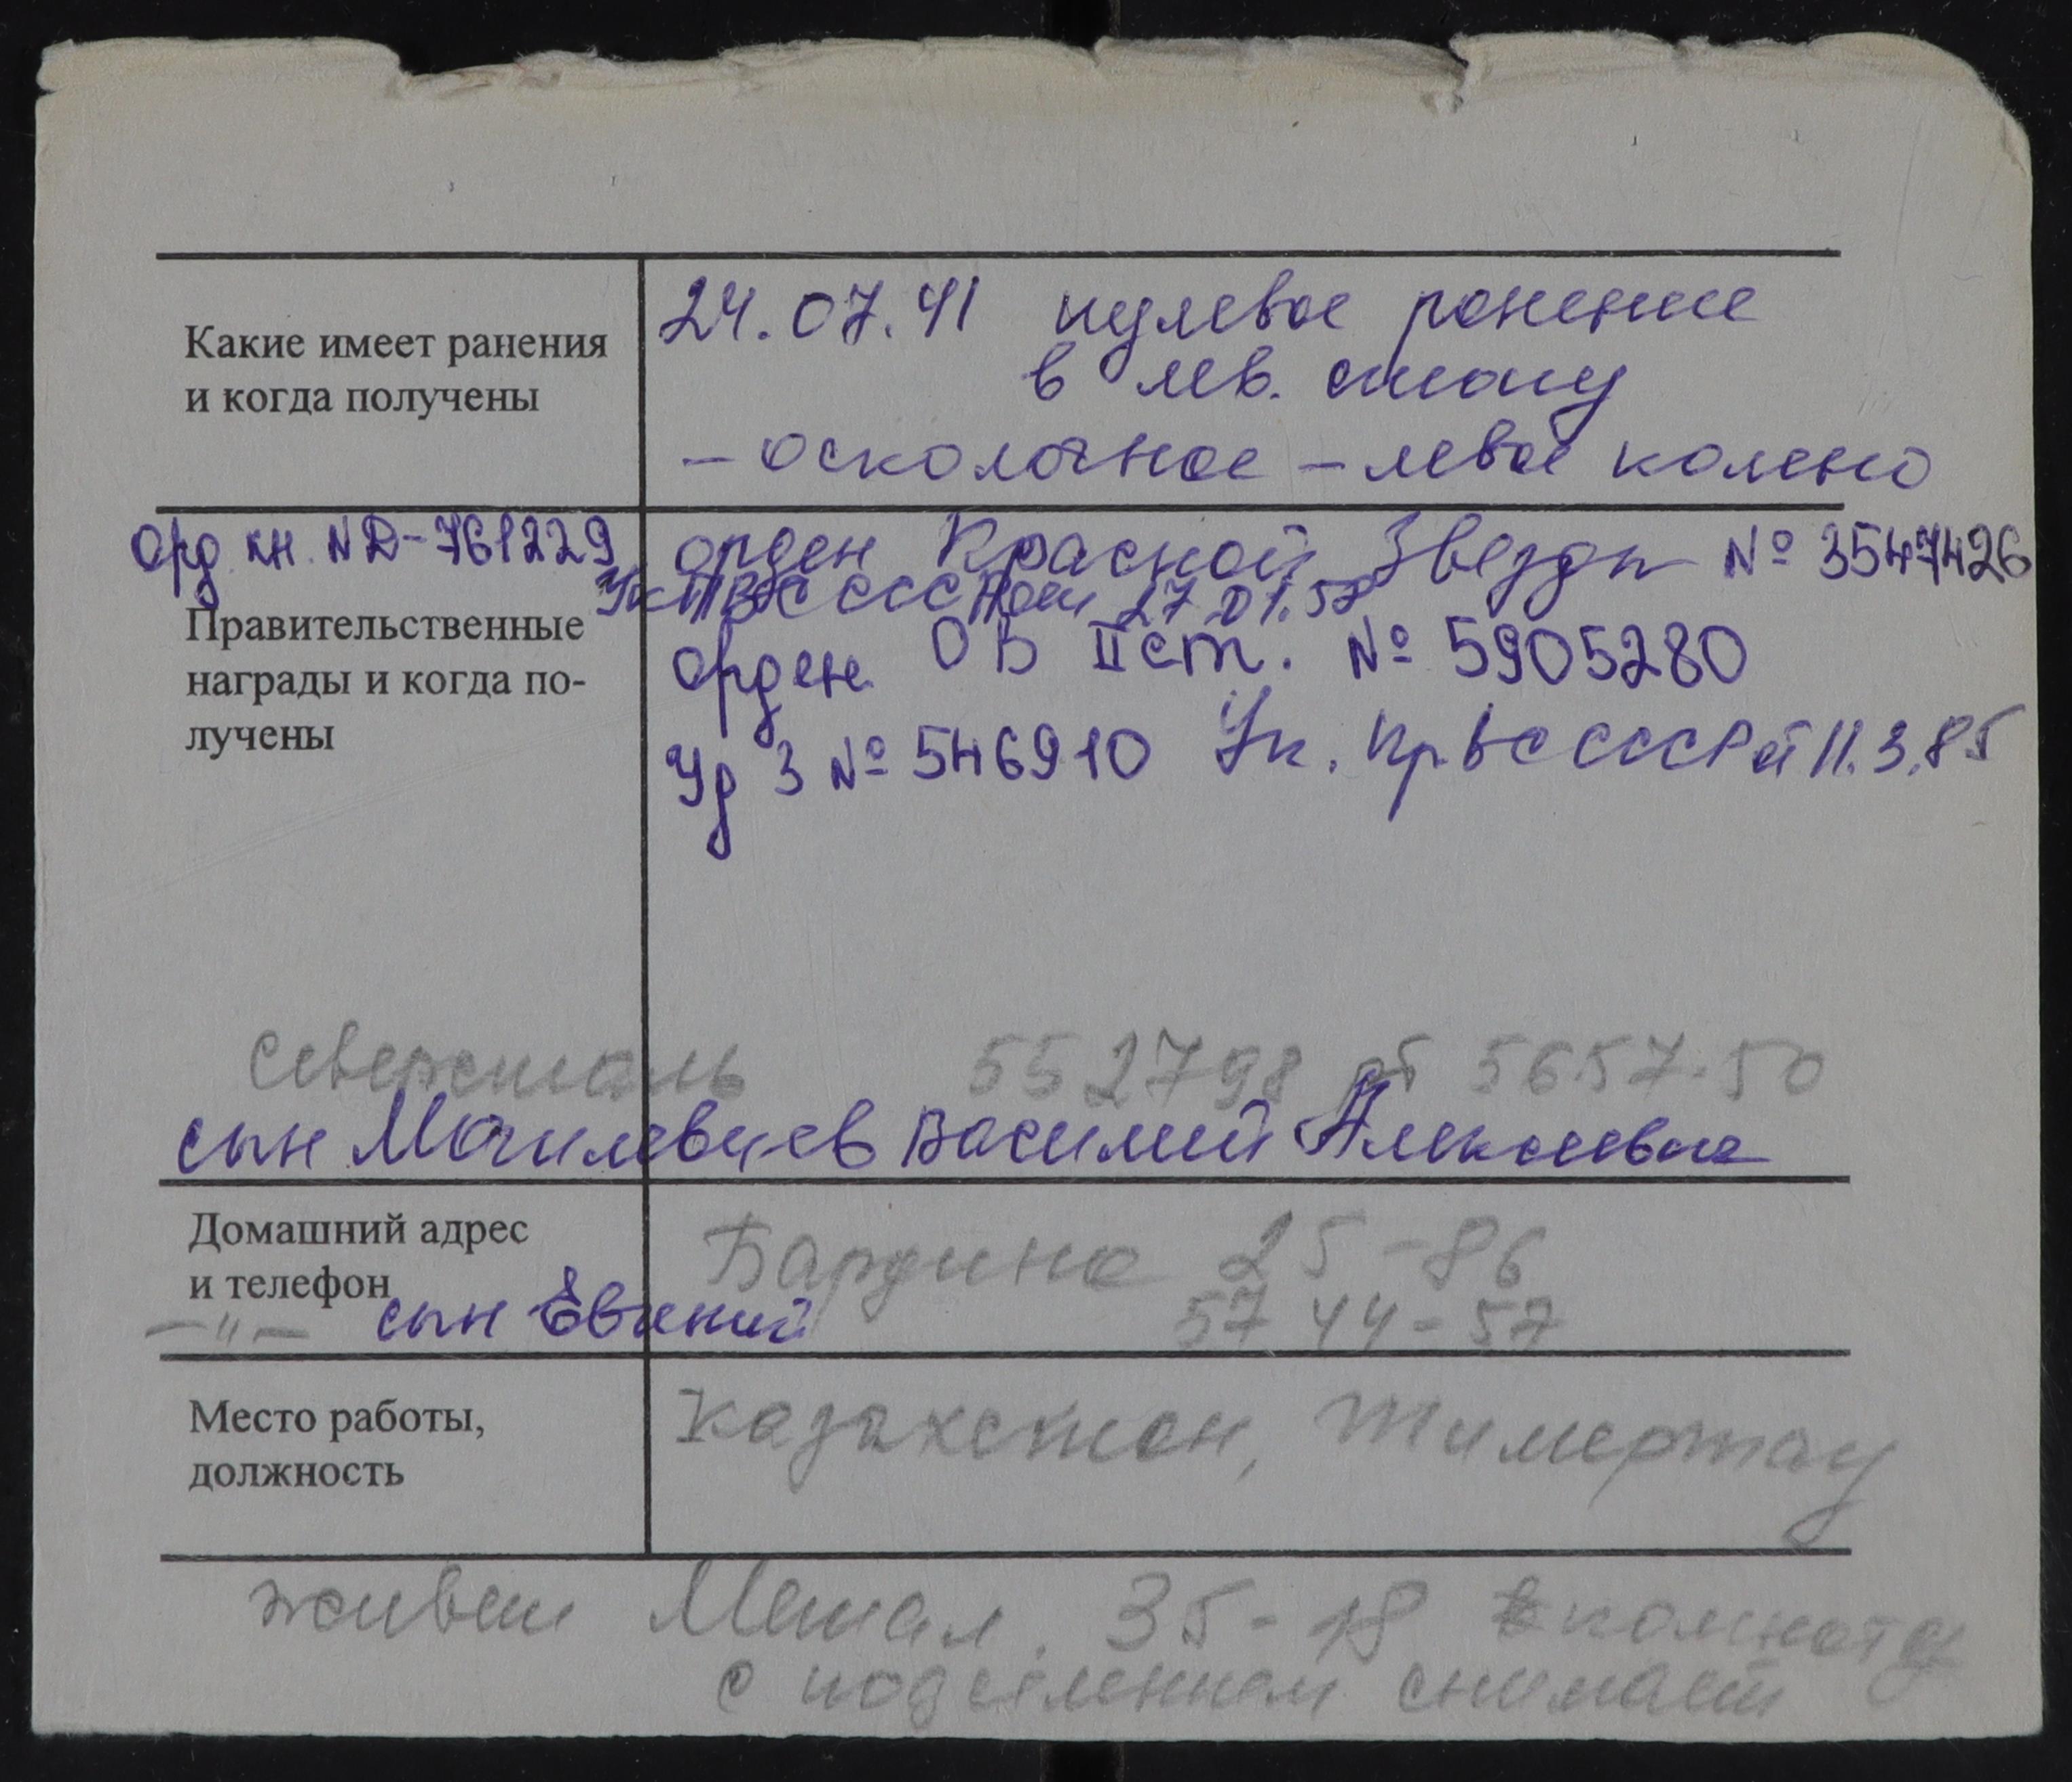 Какие имеет ранения
и когда получены
24.07.41 пулевое ранение
в лев. стопу
– осколочное – левое колено
Орд. кн. № Д-761229
орден Красной Звезды № 3547426
Ук ПВС СССР от 27.01.58
Правительственные
награды и когда по-
лучены
орден ОВ II ст. № 5905280
Уд З № 546910 Ук. Пр ВС СССР от 11.3.85
Северсталь 552798 от 5657.50
сын Могилевцев Василий Алексеевич
Домашний адрес
и телефон
Бардина 25-86
–"– сын Евгений 57 44-57
Место работы,
должность
Казахстан, Тимертау
живет Метал. 35-18 комнату
с подселением снимает